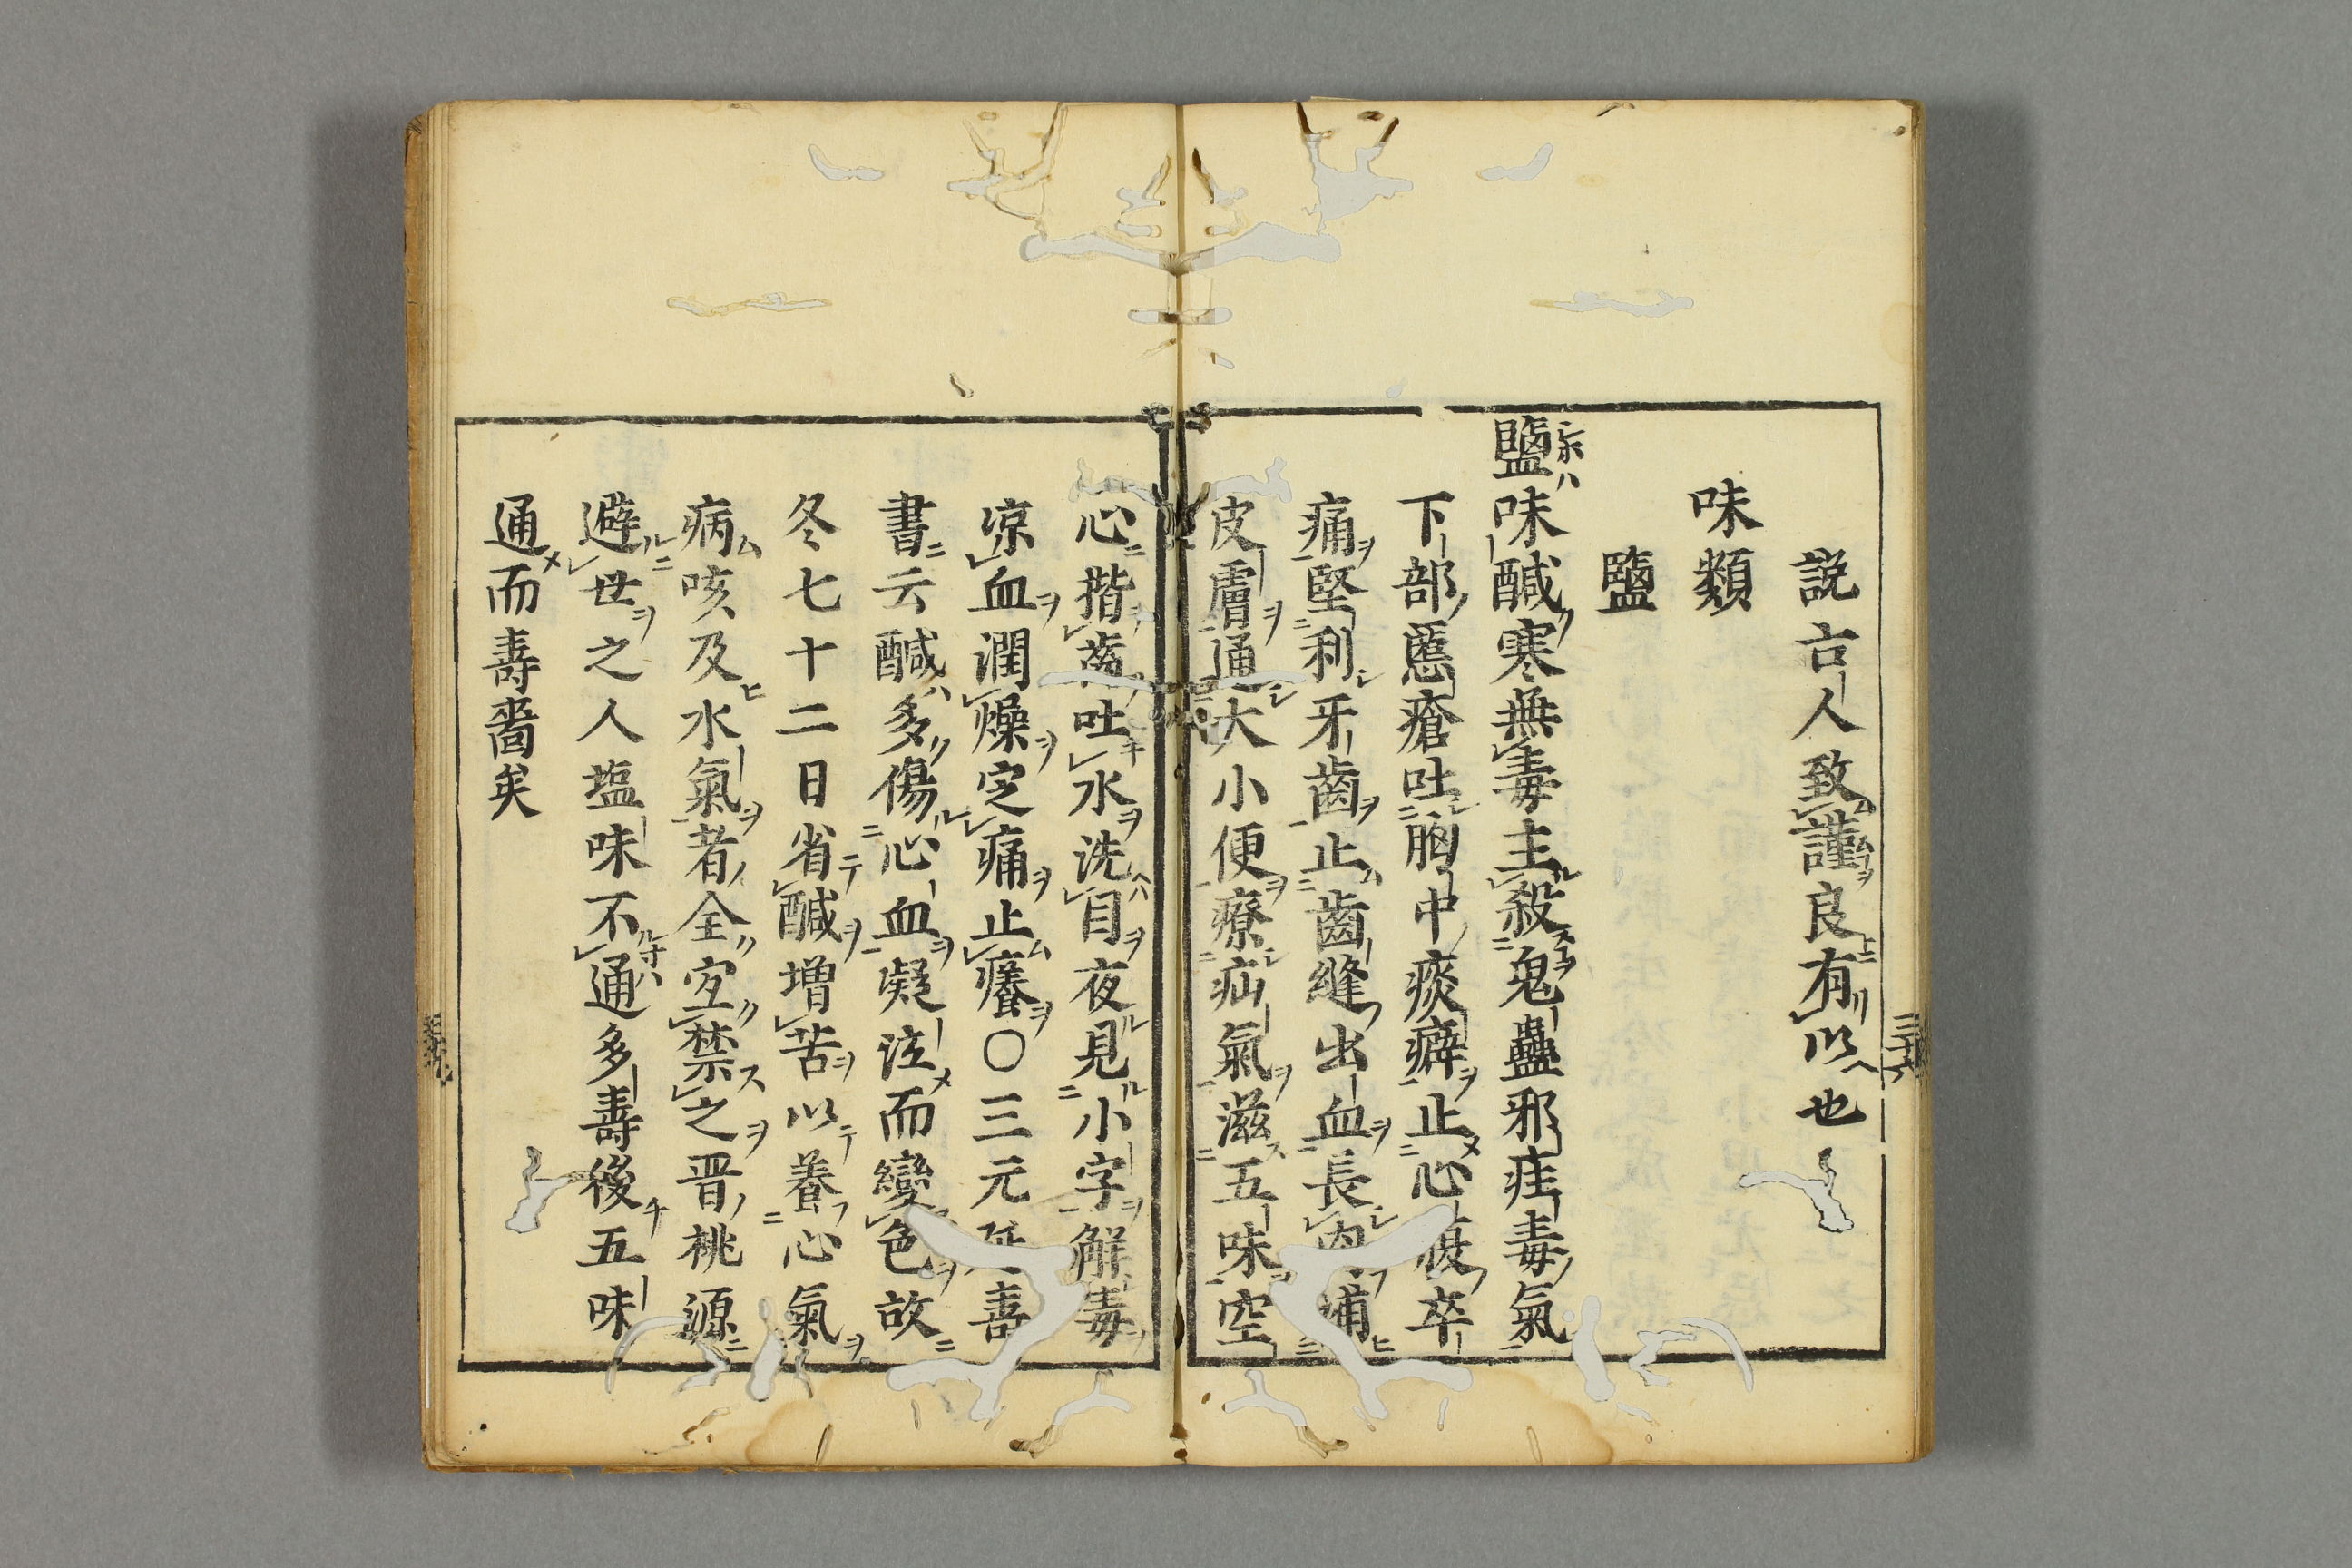 説古人致謹良有以也
味類
鹽
鹽味醎寒無毒主殺鬼蠱邪疰毒氣
下部䘌瘡吐胸中痰癖止心腹卒
痛堅利牙齒止齒縫出血長肉補
皮膚通大小便療疝氣滋五味空
心揩齒吐水洗目夜見小字解毒
凉血潤燥定痛止癢〇三元延壽
書云醎多傷心血凝泣而變色故
冬七十二日省醎增苦以養心氣
病咳及水氣者全宜禁之晋桃源
避世之人塩味不通多壽後五味
通而壽嗇矣